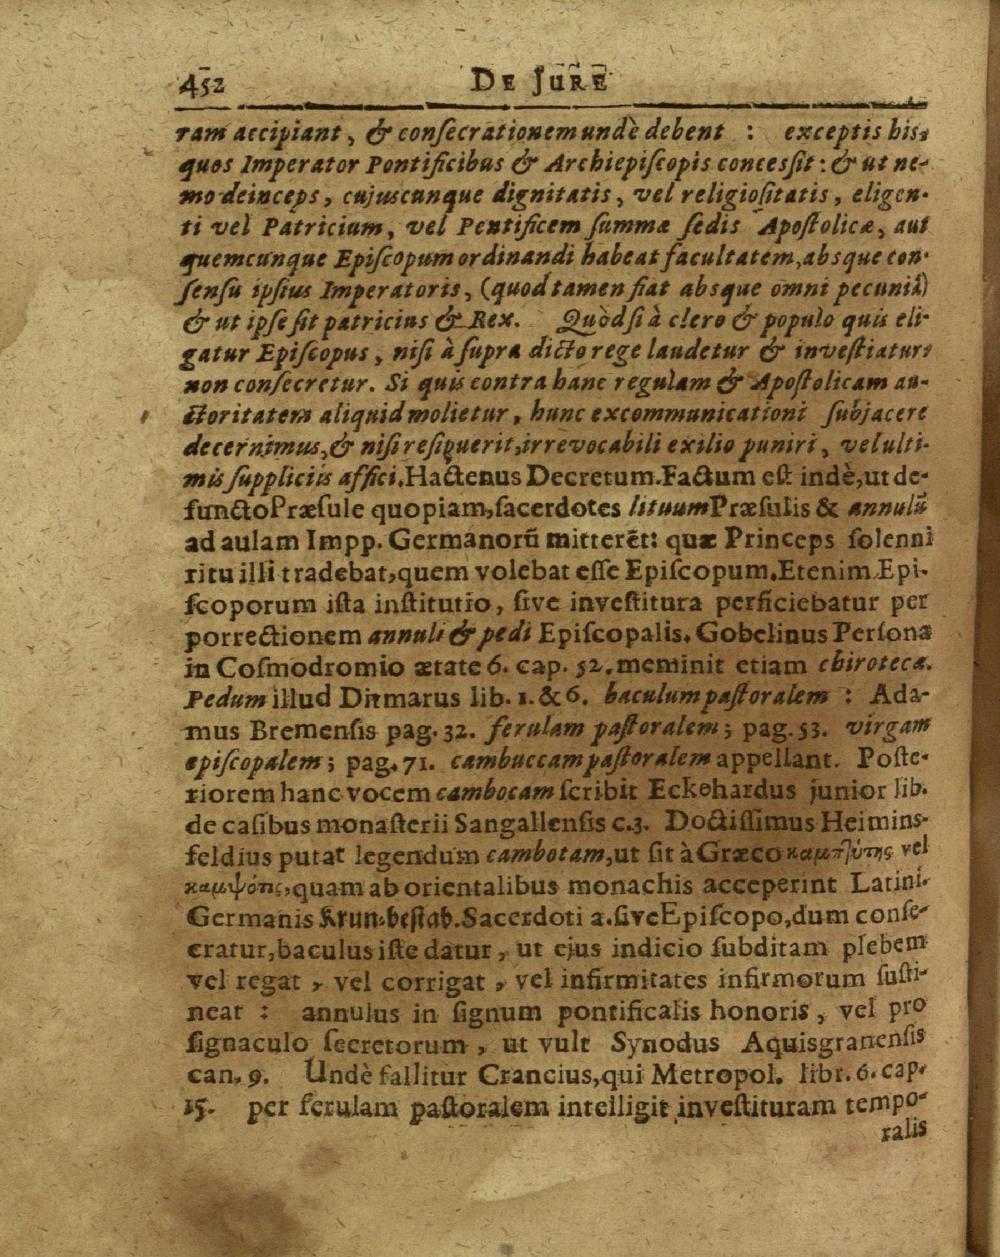 452 DE JURE
ram accipiant, & conſecrationem undè debent : exceptis his,
quos Imperator Pontificibus & Archiepiſcopis conceſſit: & ut ne-
mo deinceps, cujuscunque dignitatis, vel religioſitatis, eligen-
ti vel Patricium, vel Pentificem ſummæ ſedis Apoſtolicæ, aut
quemcunque Epiſcopum ordinandi habeat facultatem, absque con-
ſenſu ipſius Imperatoris, (quod tamen fiat absque omni pecuniâ)
& ut ipſe ſit patricius & Rex. Quòdſi à clero & populo quis eli-
gatur Epiſcopus, niſi à ſupra dicto rege laudetur & inveſtiatur,
non conſecretur. Si quis contra hanc regulam & Apoſtolicam au-
ctoritatem aliquid molietur, hunc excommunicationi ſubjacere
decernimus, & niſi reſipuerit, irrevocabili exilio puniri, vel ulti-
mis ſuppliciis affici. Hactenus Decretum. Factum eſt indè, ut de-
functo Præſule quopiam, ſacerdotes lituum Præſulis & annulū
ad aulam Impp. Germanorū mitterēt: quæ Princeps ſolenni
ritu illi tradebat, quem volebat eſſe Epiſcopum. Etenim Epi-
ſcoporum iſta inſtitutio, ſive inveſtitura perficiebatur per
porrectionem annuli & pedi Epiſcopalis. Gobelinus Perſona
in Coſmodromio ætate 6. cap. 52. meminit etiam chirotecæ.
Pedum illud Ditmarus lib. 1. & 6. baculum paſtoralem : Ada-
mus Bremenſis pag. 32. ferulam paſtoralem; pag. 53. virgam
epiſcopalem; pag. 71. cambuccam paſtoralem appellant. Poſte-
riorem hanc vocem cambocam ſcribit Eckehardus junior lib.
de caſibus monaſterii Sangallenſis c. 3. Doctiſſimus Heimins-
feldius putat legendum cambotam, ut ſit à Græco καμπύτης vel
καμψότης, quam ab orientalibus monachis acceperint Latini.
Germanis Krumbeſtab. Sacerdoti a. ſive Epiſcopo, dum conſe-
cratur, baculus iſte datur, ut ejus indicio ſubditam plebem
vel regat, vel corrigat, vel infirmitates infirmorum ſuſti-
neat : annulus in ſignum pontificalis honoris, vel pro
ſignaculo ſecretorum, ut vult Synodus Aquisgranenſis
can. 9. Undè fallitur Crancius, qui Metropol. libr. 6. cap.
15. per ferulam paſtoralem intelligit inveſtituram tempo-
ralis